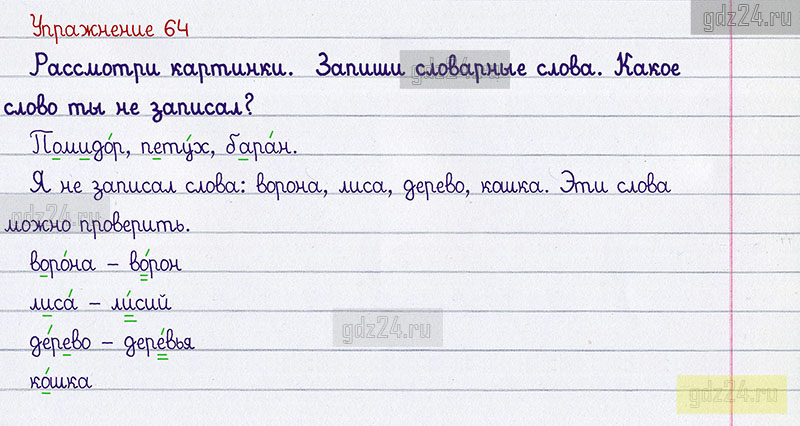 gdz24.ru
Упражнение 64
Рассмотри картинки. Запиши словарные слова. Какое
gdz24.ru
слово ты не записал?
Помидо́р, пету́х, бара́н.
Я не записал слова: ворона, лиса, дерево, кошка. Эти слова
gdz24.ru
можно проверить.
воро́на – во́рон
лиса́ – ли́сий
де́рево – дере́вья
gdz24.ru
ко́шка
gdz24.ru